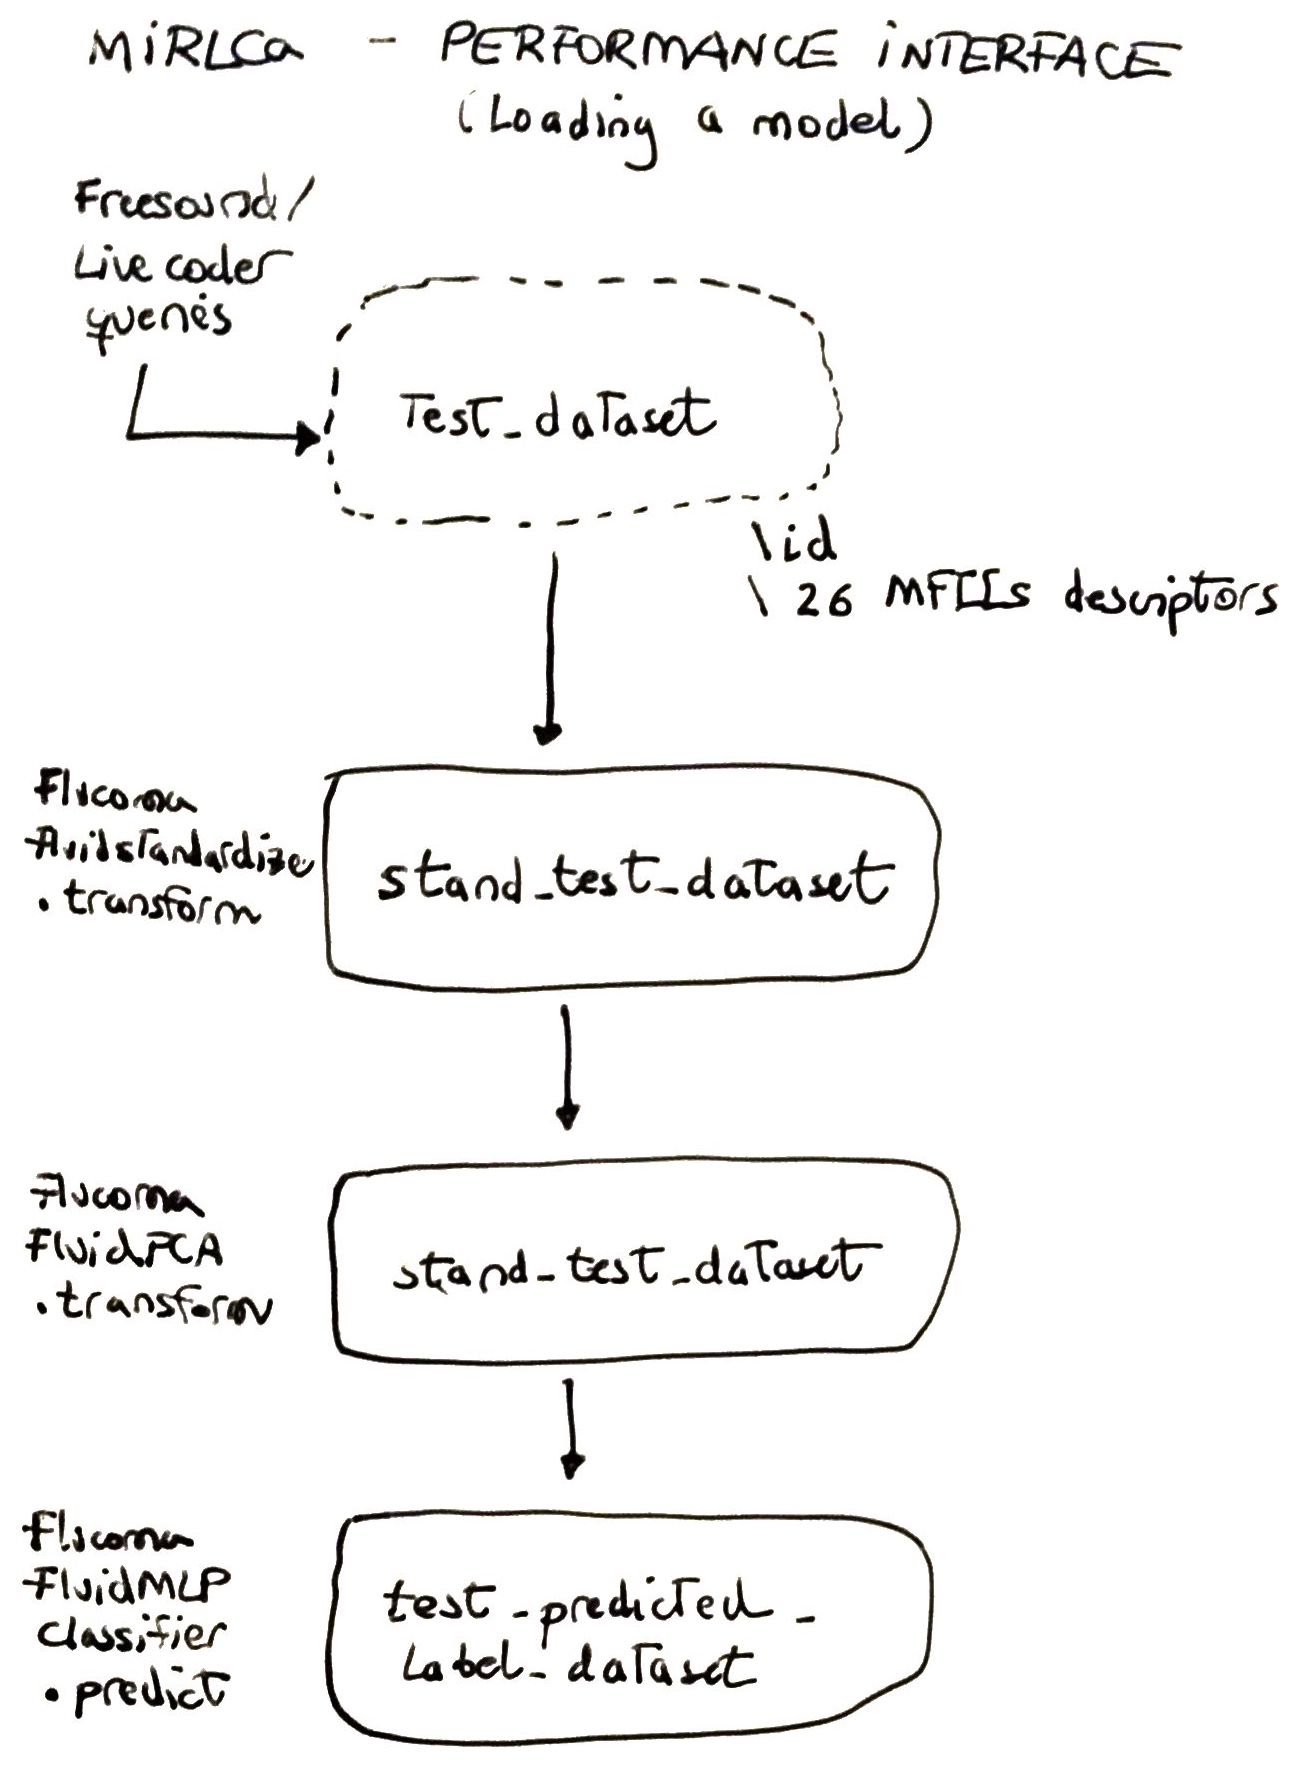 MIRLCa - PERFORMANCE INTERFACE
(Loading a model)
Freesound/
Live coder
queries
Test_dataset
\id
\ 26 MFCCs descriptors
Flucoma
Fluidstandardize
.transform
stand_test_dataset
Flucoma
FluidPCA
.transform
stand_test_dataset
Flucoma
FluidMLP
classifier
.predict
test_predicted_
Label_dataset